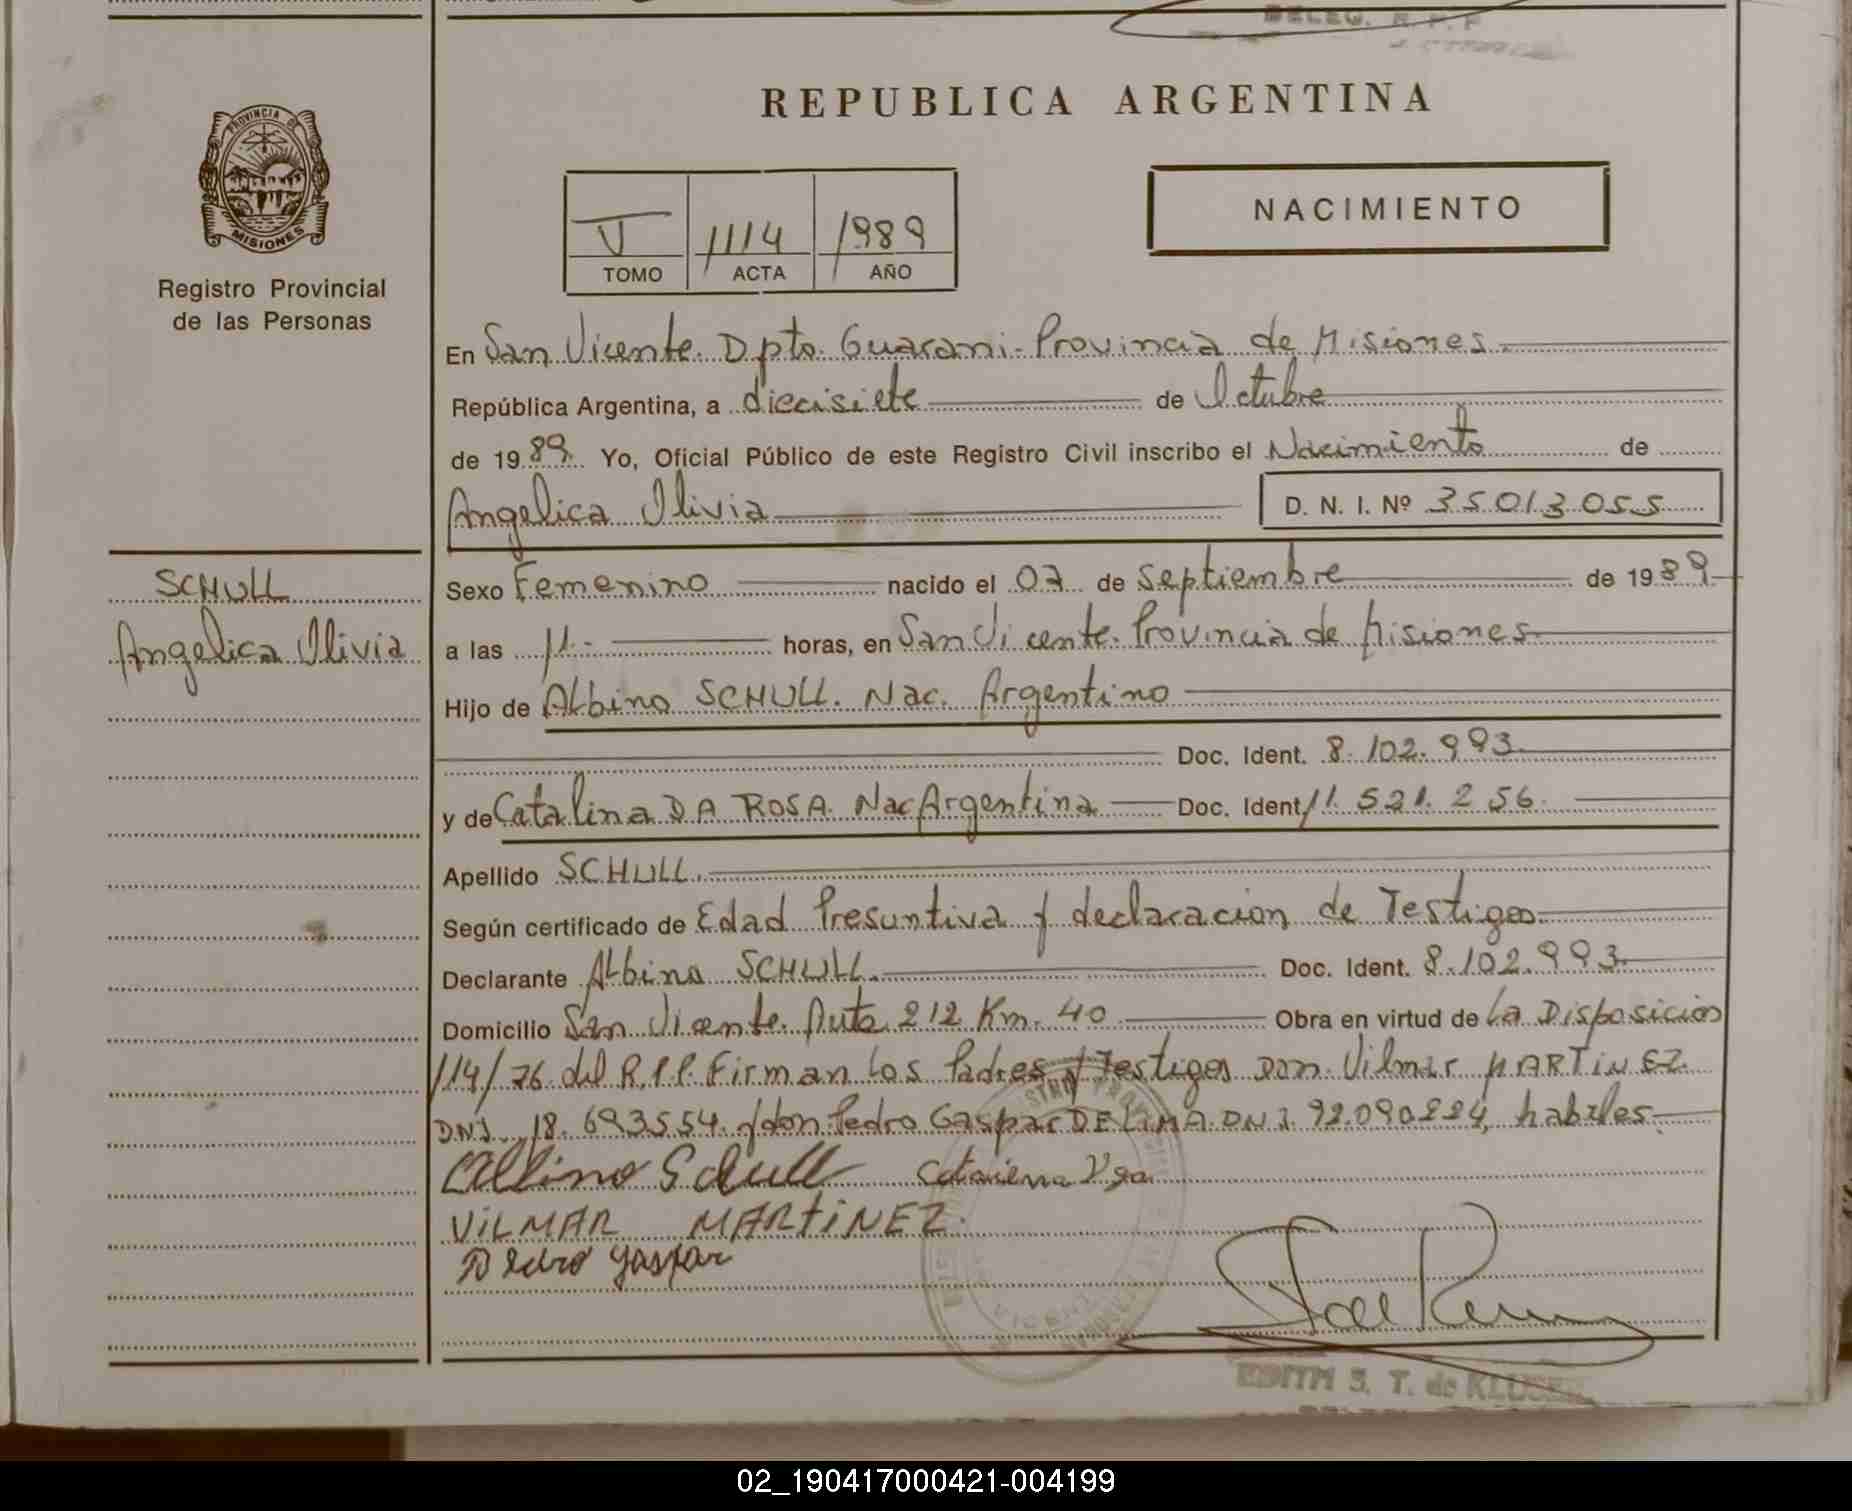 DELEG. R. P. P
REPUBLICA ARGENTINA
PROVINCIA DE
MISIONES
Registro Provincial
de las Personas
V 1114 1989
TOMO ACTA AÑO
NACIMIENTO
En San Vicente. Dpto. Guarani - Provincia de Misiones.
República Argentina, a diecisiete de Octubre
de 1989. Yo, Oficial Público de este Registro Civil inscribo el Nacimiento de
Angelica Olivia D. N. I. Nº 35013055
SCHULL
Angelica Olivia
Sexo Femenino nacido el 07 de Septiembre de 1989
a las 11.- horas, en San Vicente. Provincia de Misiones.
Hijo de Albino SCHULL. Nac. Argentino
Doc. Ident. 8.102.993.
y de Catalina DA ROSA. Nac Argentina Doc. Ident. 11.521.256.
Apellido SCHULL.
Según certificado de Edad Presuntiva y declaracion de Testigos.
Declarante Albino SCHULL. Doc. Ident. 8.102.993.
Domicilio San Vicente. Ruta 212 Km. 40 Obra en virtud de La Disposicion
114/76 del R.P.P. Firman los Padres y Testigos Don. Vilmar MARTINEZ.
DNI. 18.693554. y don Pedro Gaspar DE LIMA. DNI. 92.090224, habiles.
Albino Schull
VILMAR MARTINEZ.
Pedro gaspar
EDITH S. T. de
02_190417000421-004199